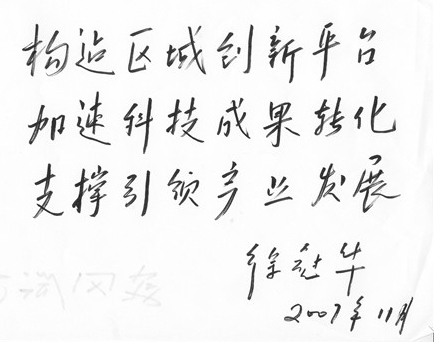 构造区域创新平台
加速科技成果转化
支撑引领产业发展
徐冠华
2007年11月